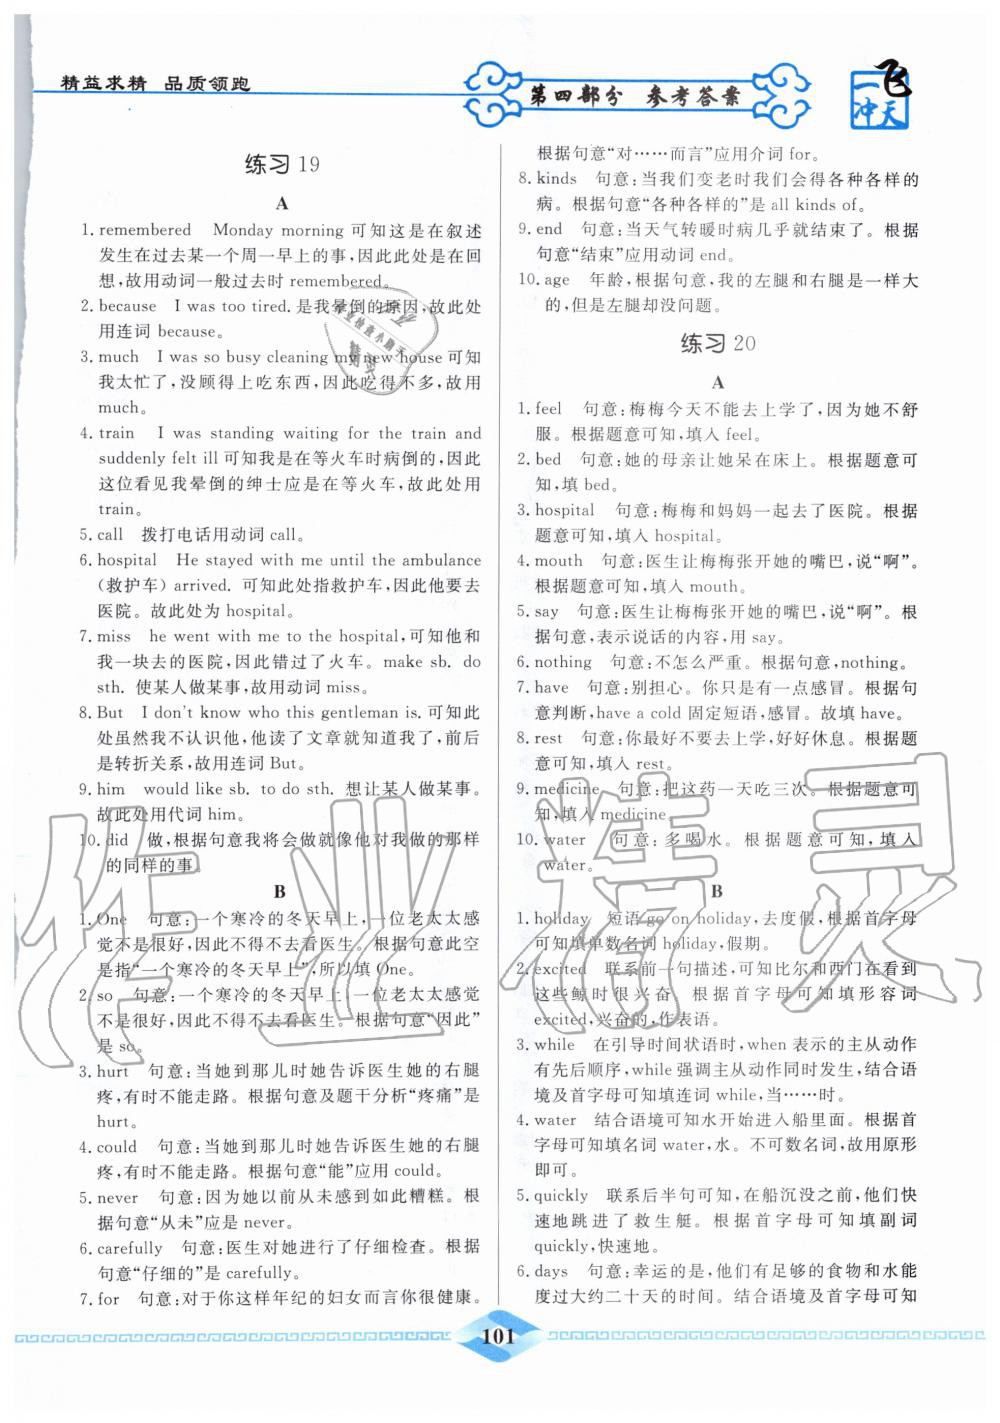 精益求精 品质领跑
第四部分 参考答案
一飞冲天
练习 19
A
1. remembered Monday morning 可知这是在叙述
发生在过去某一个周一早上的事，因此此处是在回
想，故用动词一般过去时 remembered.
2. because I was too tired. 是我晕倒的原因，故此处
用连词 because。
3. much I was so busy cleaning my new house 可知
我太忙了，没顾得上吃东西，因此吃得不多，故用
much。
4. train I was standing waiting for the train and
suddenly felt ill 可知我是在等火车时病倒的，因此
这位看见我晕倒的绅士应是在等火车，故此处用
train。
5. call 拨打电话用动词 call。
6. hospital He stayed with me until the ambulance
(救护车) arrived. 可知此处指救护车，因此他要去
医院。故此处为 hospital。
7. miss he went with me to the hospital, 可知他和
我一块去的医院，因此错过了火车。make sb. do
sth. 使某人做某事，故用动词 miss。
8. But I don't know who this gentleman is. 可知此
处虽然我不认识他，他读了文章就知道我了，前后
是转折关系，故用连词 But。
9. him would like sb. to do sth. 想让某人做某事。
故此处用代词 him。
10. did 做，根据句意我将会做就像他对我做的那样
的同样的事
B
1. One 句意：一个寒冷的冬天早上，一位老太太感
觉不是很好，因此不得不去看医生。根据句意此空
是指“一个寒冷的冬天早上”，所以填 One。
2. so 句意：一个寒冷的冬天早上，一位老太太感觉
不是很好，因此不得不去看医生。根据句意“因此”
是 so。
3. hurt 句意：当她到那儿时她告诉医生她的右腿
疼，有时不能走路。根据句意及题干分析“疼痛”是
hurt。
4. could 句意：当她到那儿时她告诉医生她的右腿
疼，有时不能走路。根据句意“能”应用 could。
5. never 句意：因为她以前从未感到如此糟糕。根
据句意“从未”应是 never。
6. carefully 句意：医生对她进行了仔细检查。根据
句意“仔细的”是 carefully。
7. for 句意：对于你这样年纪的妇女而言你很健康。
根据句意“对……而言”应用介词 for。
8. kinds 句意：当我们变老时我们会得各种各样的
病。根据句意“各种各样的”是 all kinds of。
9. end 句意：当天气转暖时病几乎就结束了。根据
句意“结束”应用动词 end。
10. age 年龄，根据句意，我的左腿和右腿是一样大
的，但是左腿却没问题。
练习 20
A
1. feel 句意：梅梅今天不能去上学了，因为她不舒
服。根据题意可知，填入 feel。
2. bed 句意：她的母亲让她呆在床上。根据题意可
知，填 bed。
3. hospital 句意：梅梅和妈妈一起去了医院。根据
题意可知，填入 hospital。
4. mouth 句意：医生让梅梅张开她的嘴巴，说“啊”。
根据题意可知，填入 mouth。
5. say 句意：医生让梅梅张开她的嘴巴，说“啊”。根
据句意，表示说话的内容，用 say。
6. nothing 句意：不怎么严重。根据句意，nothing。
7. have 句意：别担心。你只是有一点感冒。根据句
意判断，have a cold 固定短语，感冒。故填 have。
8. rest 句意：你最好不要去上学，好好休息。根据题
意可知，填入 rest。
9. medicine 句意：把这药一天吃三次。根据题意可
知，填入 medicine。
10. water 句意：多喝水。根据题意可知，填入
water。
B
1. holiday 短语 go on holiday，去度假，根据首字母
可知填单数名词 holiday，假期。
2. excited 联系前一句描述，可知比尔和西门在看到
这些鲸时很兴奋 根据首字母可知填形容词
excited，兴奋的，作表语。
3. while 在引导时间状语时，when 表示的主从动作
有先后顺序，while 强调主从动作同时发生，结合语
境及首字母可知填连词 while，当……时。
4. water 结合语境可知水开始进入船里面。根据首
字母可知填名词 water，水。不可数名词，故用原形
即可。
5. quickly 联系后半句可知，在船沉没之前，他们快
速地跳进了救生艇。根据首字母可知填副词
quickly，快速地。
6. days 句意：幸运的是，他们有足够的食物和水能
度过大约二十天的时间。结合语境及首字母可知
101
作业精灵